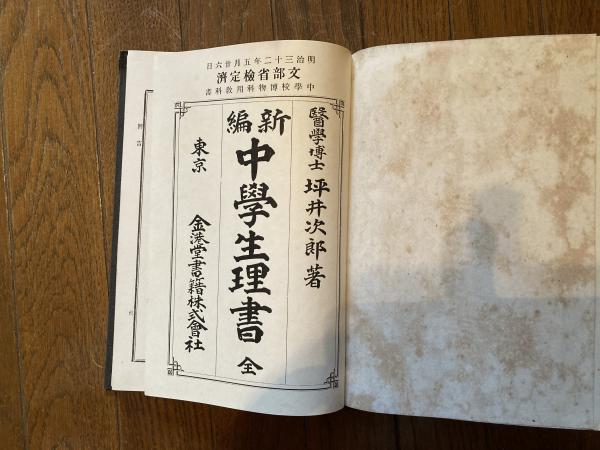 明治三十二年五月廿六日
文部省檢定濟
中學校博物科用敎科書
醫學博士 坪井次郎著
新編
中學生理書 全
東京 金港堂書籍株式會社